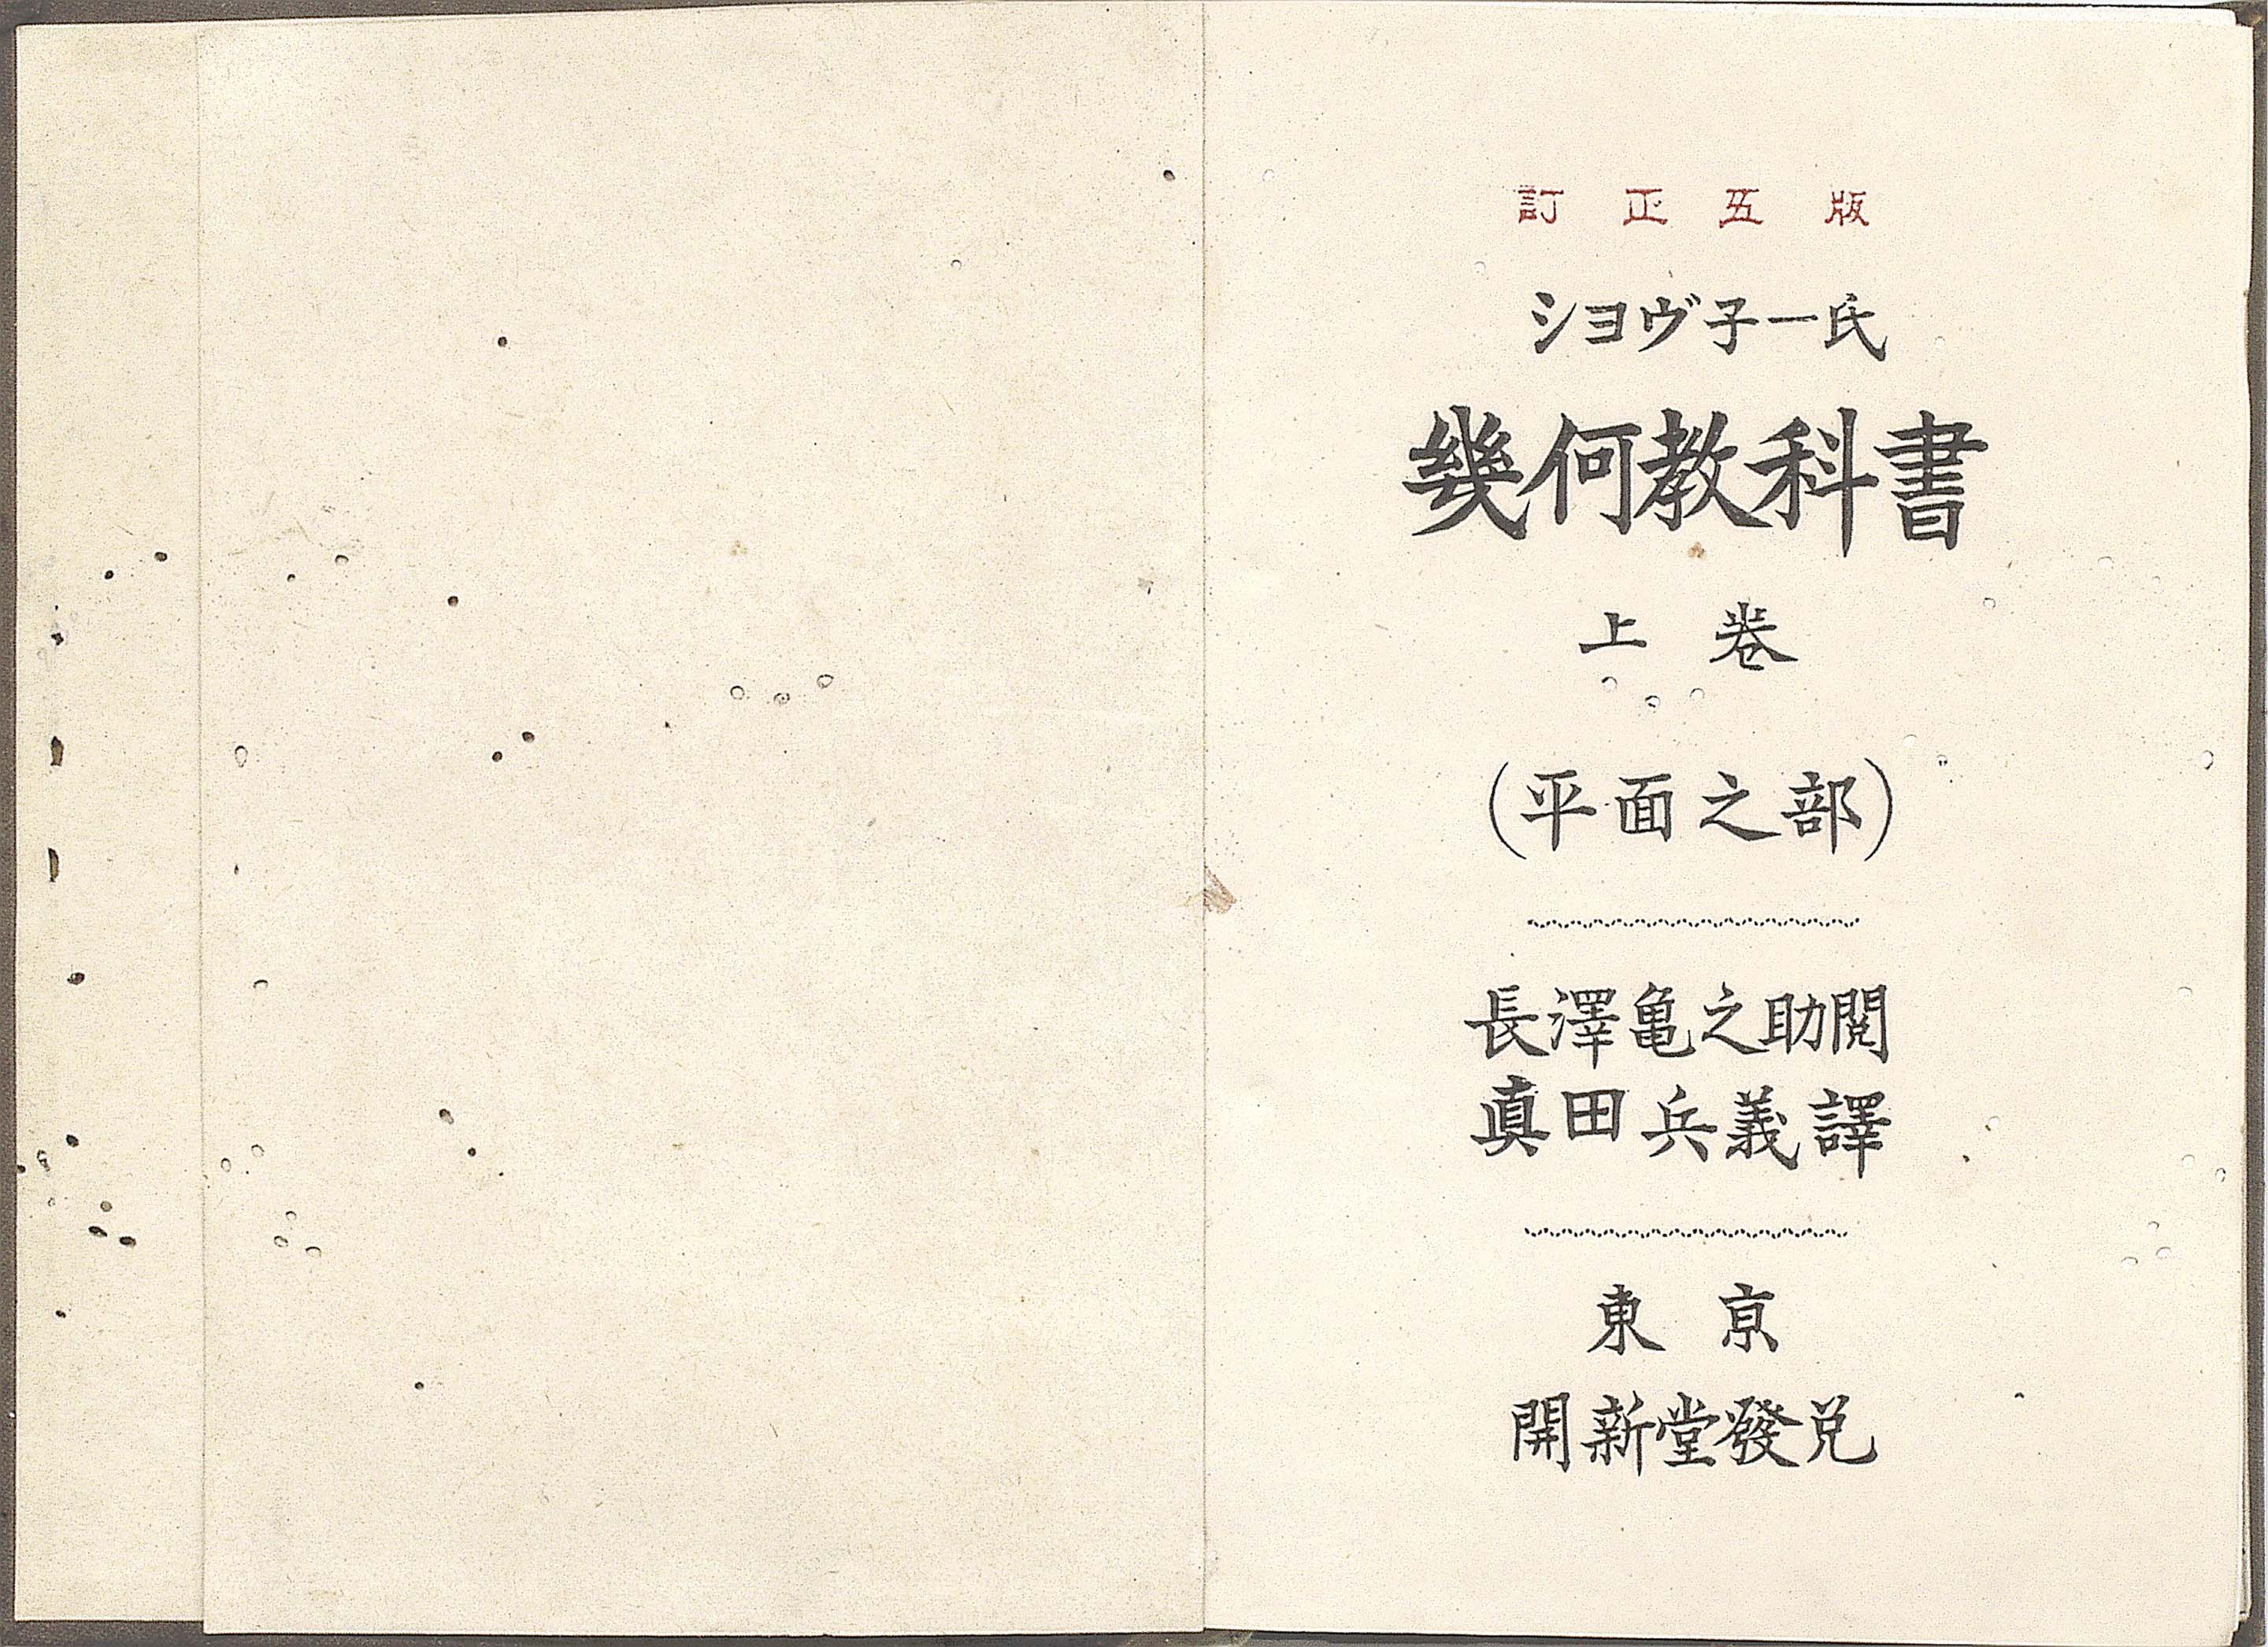 訂正五版
シヨヴ子ー氏
幾何教科書
上卷
(平面之部)
長澤亀之助閲
眞田兵義譯
東京
開新堂發兌